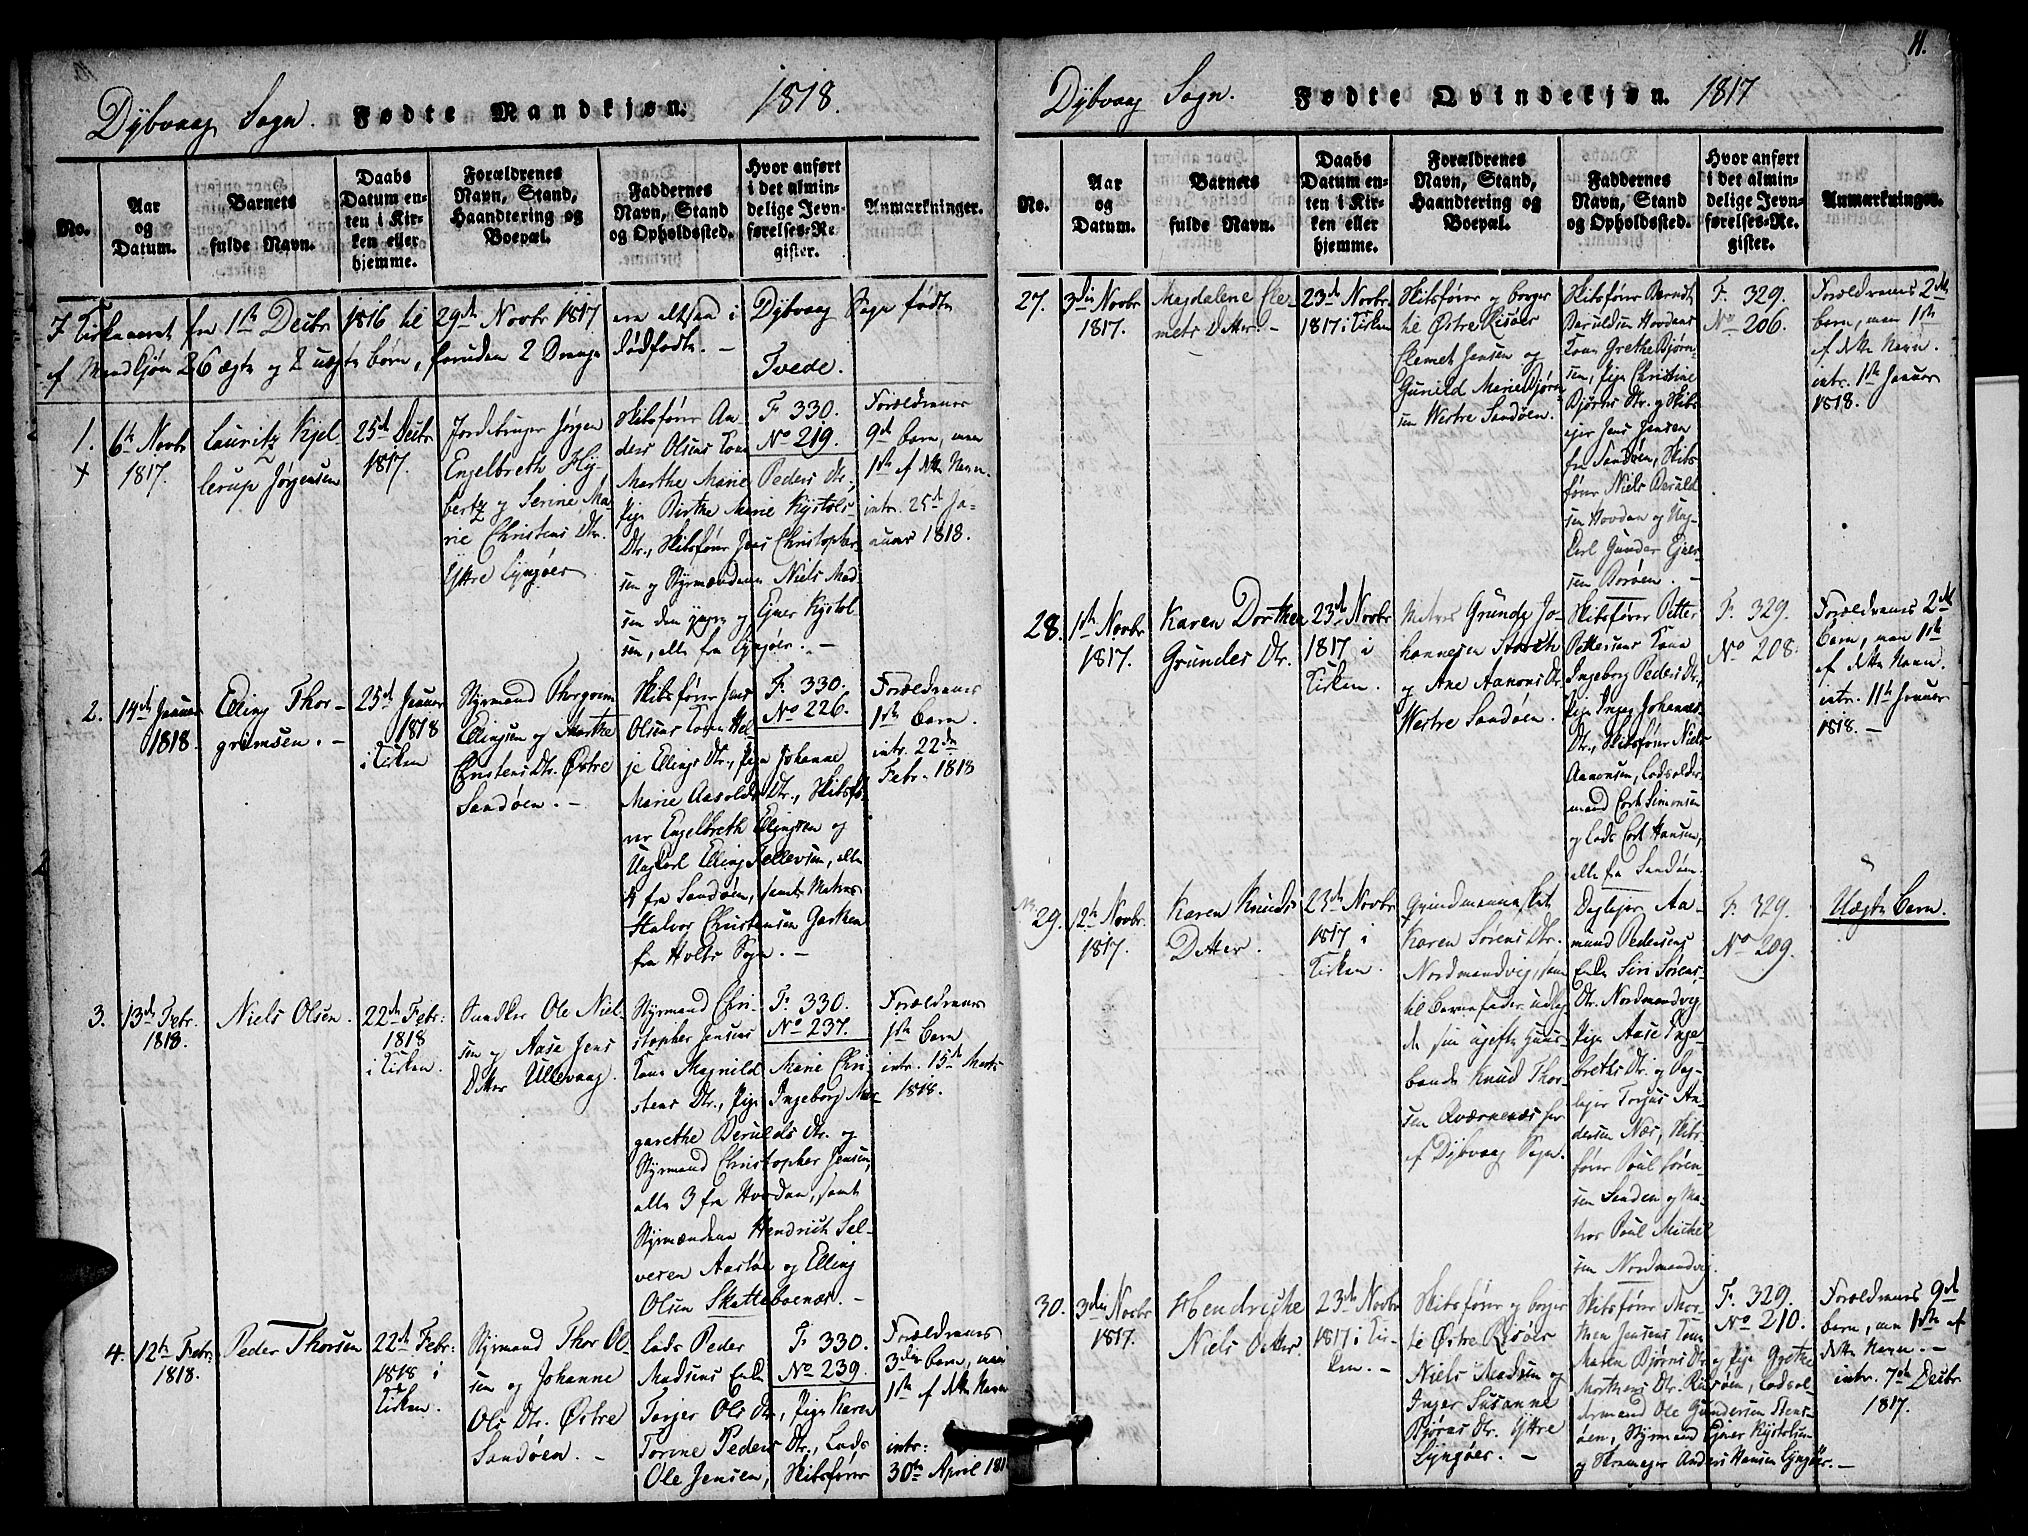 Dybvaag Sogn. Fødte Mandkjøn. 1818.
No.
Aar
og
Datum.
Barnets
fulde Navn.
Daabs
Datum en-
ten i Kir-
ken eller
hjemme.
Forældrenes
Navn, Stand,
Haandtering og
Boepæl.
Faddernes
Navn, Stand
og Opholdssted.
Hvor anført
i det almin-
delige Jevn-
førelses-Re-
gister.
Anmærkninger.
I Kirkeaaret fra 1ste Decbr 1816 til 29de Novbr 1817 ere altsaa i Dybvaag Sogn fødte
af Mandkjøn 26 ægte og 2 uægte børn, foruden 2 Drenge dødfødte. —
Tvede.
1.
6te Novbr
1817.
Lauritz Kjel-
lerup Jørgensen
25de Decbr
1817.
Jordebruger Jørgen
Engelbreth Hy-
bertz og Serine Ma-
rie Christens Dtr.
Yttre Lyngøer
Skibsfører An-
ders Olsens Kone
Marthe Marie Peders Dtr.,
Pige Birthe Marie Kystols
Dtr., Skibsfører Jens Christopher-
sen og Styrmændene Niels Mad-
sen den yngre og Ejner Kystol-
sen, alle fra Lyngøer. —
F. 330.
No 219.
Forældrenes
9de barn, men
1ste af dette Navn.
intr. 25de Ja-
nuar 1818.
2.
14de Januar
1818.
Elling Thor-
grimsen. —
25de Januar
1818
i Kirken
Styrmand Thorgrim
Ellingsen og Marthe
Christens Dtr. Østre
Sandøen. —
Skibsfører Jens
Olsens Kone Hel-
je Ellings Dtr., Pige Johanne
Marie Aasolds Dtr., Skibsfø-
rer Engelbreth Ellingsen og
Ungkarl Elling Tellevsen, alle
4 fra Sandøen, samt Matros
Halvor Christensen Garthen
fra Holts Sogn. —
F. 330.
No 226.
Forældrenes
1ste barn.
intr. 22de
Febr. 1818
3.
13de Febr.
1818.
Niels Olsen.
22de Febr:
1818
i Kirken.
Ole Niel-
sen og Aase Jens
Datter Ullevaag.
Styrmand Chri-
stopher Jensens
Kone Magnild Marie Chri-
stens Dtr., Pige Ingeborg Mar-
garethe Berulds Dtr. og
Styrmand Christopher Jensen,
alle 3 fra Hovdan, samt
Styrmændene Hendrich Sel-
vesen Aastøe og Elling
Olsen Skatteboenæs. —
F. 330.
No 237.
Forældrenes
1ste Barn
intr. 15de Marts
1818.
4.
12te Febr:
1818.
Peder Thorsen
22de Febr:
1818 i
Kirken.
Styrmand Thor Ol-
sen og Johanne
Ols Dtr. Østre
Sandøen. —
Lods Peder
Madsens Enke
Torjer Ols Dtr., Pige Karen
Torine Peders Dtr., Lods
Ole Jensen, Skibsfører
F. 330.
No 239.
Forældrenes
3die barn, men
1ste af dette Navn
intr:
30te April 181
11.
Dybvaag Sogn. Fødte Qvindekjøn. 1817
No.
Aar
og
Datum.
Barnets
fulde Navn.
Daabs
Datum en-
ten i Kir-
ken eller
hjemme.
Forældrenes
Navn, Stand,
Haandtering og
Boepæl.
Faddernes
Navn, Stand
og Opholdssted.
Hvor anført
i det almin-
delige Jevn-
førelses-Re-
gister.
Anmærkninger.
27.
3die Novbr
1817.
Magdalene Cle-
mets Datter. —
23de Novbr.
1817 i Kirken
Skibsfører og borger
til Østre Risøer
Clemet Jensen og
Gunild Marie Bjørn-
sen Westre Sandøen.
Skibsfører Berndt
Beruldsen Hovdans
Kone Grethe Bjørn-
sen, Pige Christine
Bjørns Dtr. og Skibs-
ejer Jens Jensen
fra Sandøen, Skibs-
fører Niels Beruld-
sen Hovdan og Ung-
karl Gunder Ejner-
sen Borøen. —
F. 329.
No 206.
Forældrenes 2det
barn, men 1ste
af dette Navn.
intr. 1ste Januar
1818.
28.
1ste Novbr
1817.
Karen Dorthea
Grundes Dtr.
23de Novbr
1817 i
Kirken.
Matros Grunde Jo-
hannesen Storch
og Ane Aanons Dtr.
Westre Sandøen.
Skibsfører Petter
Pettersens Kone
Ingeborg Peders Dtr.,
Pige Inger Johannes
Dtr., Skibsfører Niels
Aanonsen, Lodsolder-
mand Cort Simonsen
og Lods Cort Hansen,
alle fra Sandøen.
F. 329.
No 208.
Forældrenes 2det
Barn, men 1ste
af dette Navn.
intr. 11te Januar
1818. —
29.
12te Novbr.
1817.
Karen Knuds
Datter.
23de Novbr
1817 i
Kirken.
Karen Sørens Dtr.
Nordmandvig, som
til Barnefader udlag-
de sin ugifte
Knud Thor-
sen Qværnenæs her
af Dybvaag Sogn.
Dagleier Aa-
mund Pedersens
Enke Siri Sørens
Dtr. Nordmandvig,
Pige Aase Inge-
breths Dtr. og Dag-
lejer Torjus An-
dersen Næs, Skibs-
fører Poul Søren-
sen Sanden og Ma-
tros Poul Michel-
sen Nordmandvig
F. 329.
No 209.
Uægte Barn.
30.
3die Novbr
1817.
Hendriche
Niels Datter.
23de Novbr
1817 i Kir-
ken. —
Skibsfører og borger
til Østre Risøer
Niels Madsen og
Inger Susanne
Bjørns Dtr. Yttre
Lyngøer. —
Skibsfører Mor-
then Jensens Kone
Maren Bjørns Dtr. og Pige Grethe
Morthens Dtr. Risøen, Lodsol-
dermand Ole Gundersen Stens-
øen, Styrmand Ejner Kystolsen
og Anders Hansen Lyngøer. —
F. 329.
No 210.
Forældrenes 9de
barn, men 1ste af
dette Navn. —
intr. 7de Decbr
1817.